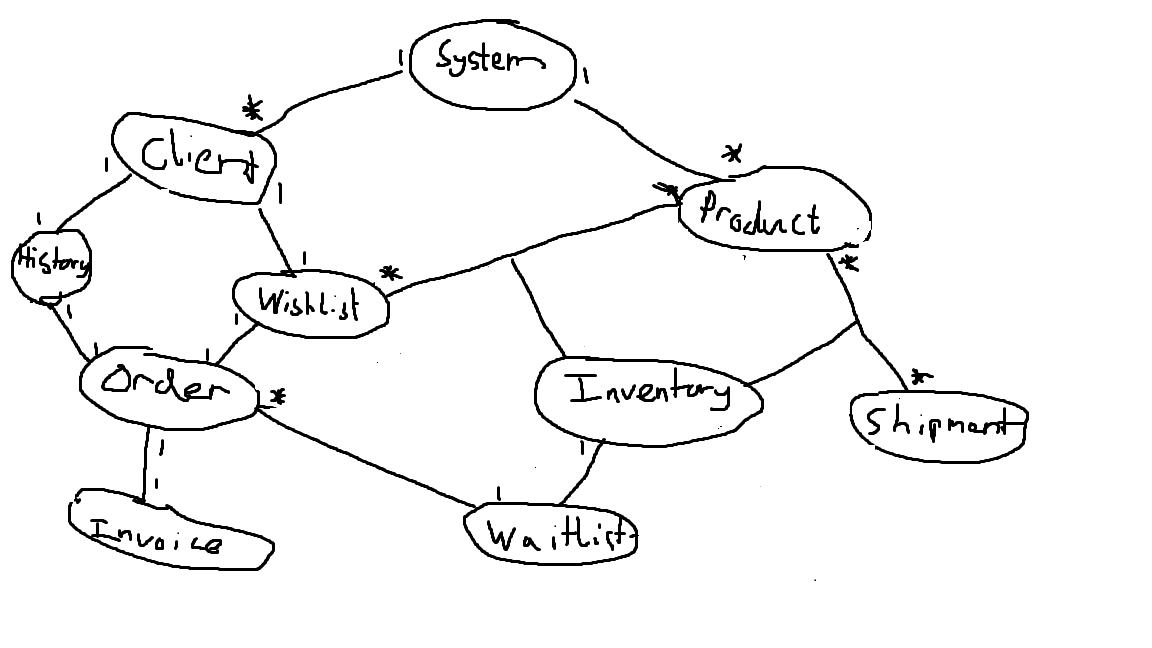 System
1
1
*
*
Client
1
1
*
Product
*
1
History
1
1
*
Wishlist
1
1
1
Order
*
Inventory
*
Shipment
1
1
1
1
Invoice
Waitlist